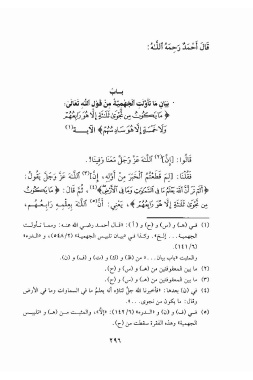 قَالَ أَحْمَدُ رَحِمَهُ ٱللَّهُ:
بَـابُ
بَيَانِ مَا تَأَوَّلَتِ الْجَهْمِيَّةُ مِنْ قَوْلِ اللهِ تَعَالَىٰ:
﴿ مَا يَكُونُ مِن نَّجْوَىٰ ثَلَٰثَةٍ إِلَّا هُوَ رَابِعُهُمْ
وَلَا خَمْسَةٍ إِلَّا هُوَ سَادِسُهُمْ ﴾ الآيــة(١)
قَالُوا: [إِنَّ](٢) ٱللَّهَ عَزَّ وَجَلَّ مَعَنَا وَفِينَا.
فَقُلْنَا: [لِمَ قَطَعْتُمُ الْخَبَرَ مِنْ أَوَّلِهِ، إِنَّ](٣) ٱللَّهَ عَزَّ وَجَلَّ يَقُولُ:
﴿أَلَمْ تَرَ أَنَّ ٱللَّهَ يَعْلَمُ مَا فِي ٱلسَّمَٰوَٰتِ وَمَا فِي ٱلْأَرْضِ﴾(٤)، ثُمَّ قَالَ: ﴿ مَا يَكُونُ
مِن نَّجْوَىٰ ثَلَٰثَةٍ إِلَّا هُوَ رَابِعُهُمْ ﴾، يَعْنِي: أَنَّ(٥) ٱللَّهَ بِعِلْمِهِ رَابِعُـهُـمْ،
(١) فـي (هـ) و(س) و(ح) و( أ ): «قـال أحمـد رضـي الله عنه: وممـا تـأولـت
الجهمية ... إلـخ». وكـذا فـي «بيـان تلبيس الجهمية» (٥٤٨/٢)، و«الدرء»
(١٤١/٦).
والمثبت «باب بيان...» من (ظ) و(ك) و(ت) و(ف) و(ن).
(٢) ما بين المعقوفتين من (هـ) و(س) و(ح).
(٣) ما بين المعقوفتين من (هـ) و(س) و(ح).
(٤) في (ن) بعدها: «فأخبرنا الله جلَّ ثناؤه أنه يعلمُ ما في السماوات وما في الأرض
وقال: ما يكون من نجوى...».
(٥) فـي (ف) و(ن) و«الـدرء» (١٤٢/٦): «إلَّا»، والمثبت مـن هـ) و«تلبيـس
الجهمية» وهذه الفقرة سقطت من (ح).
٢٩٦